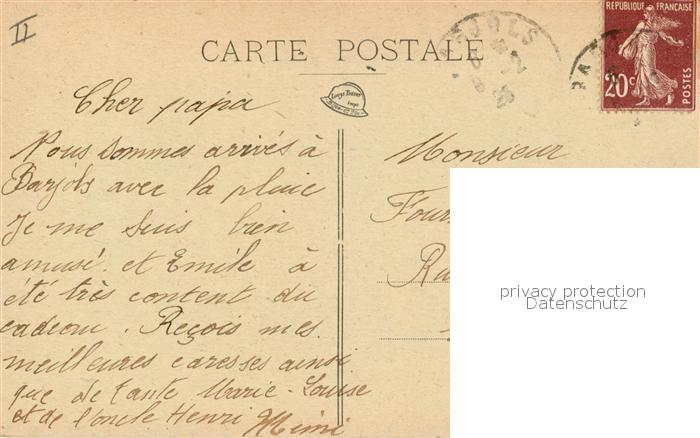 II
CARTE POSTALE
BARJOLS
REPUBLIQUE FRANÇAISE
20c
POSTES
Cher papa
Nous sommes arrivés à
Barjols avec la pluie
Je me suis bien
amusé. et Emile à
été très content du
cadeau. Reçois mes
meilleures caresses ainsi
que de tante Marie-Louise
et de l'oncle Henri Mimi
Monsieur
Four
privacy protection
Datenschutz